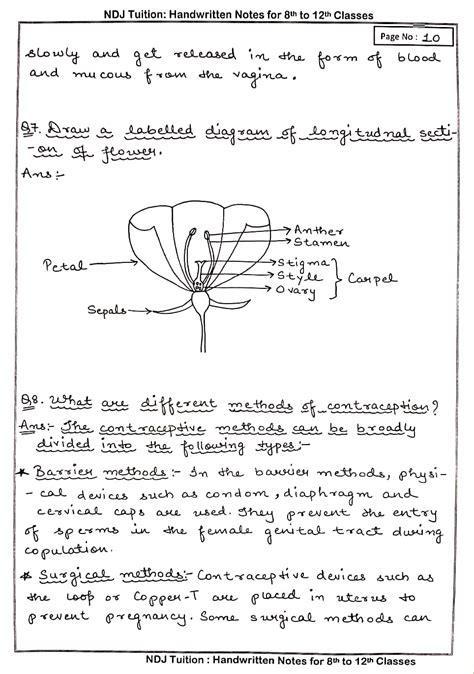 NDJ Tuition: Handwritten Notes for 8th to 12th Classes
Page No: 10
slowly and get released in the form of blood
and mucous from the vagina.
Q7. Draw a labelled diagram of longitudnal secti-
-on of flower.
Ans:-
Anther
Stamen
Petal
Stigma
Style
Carpel
Ovary
Sepals
Q8. What are different methods of contraception?
Ans:- The contraceptive methods can be broadly
divided into the following types:-
* Barrier methods:- In the barrier methods, physi-
-cal devices such as condom, diaphragm and
cervical caps are used. They prevent the entry
of sperms in the female genital tract during
copulation.
* Surgical methods:- Contraceptive devices such as
the loop or Copper-T are placed in uterus to
prevent pregnancy. Some surgical methods can
NDJ Tuition : Handwritten Notes for 8th to 12th Classes